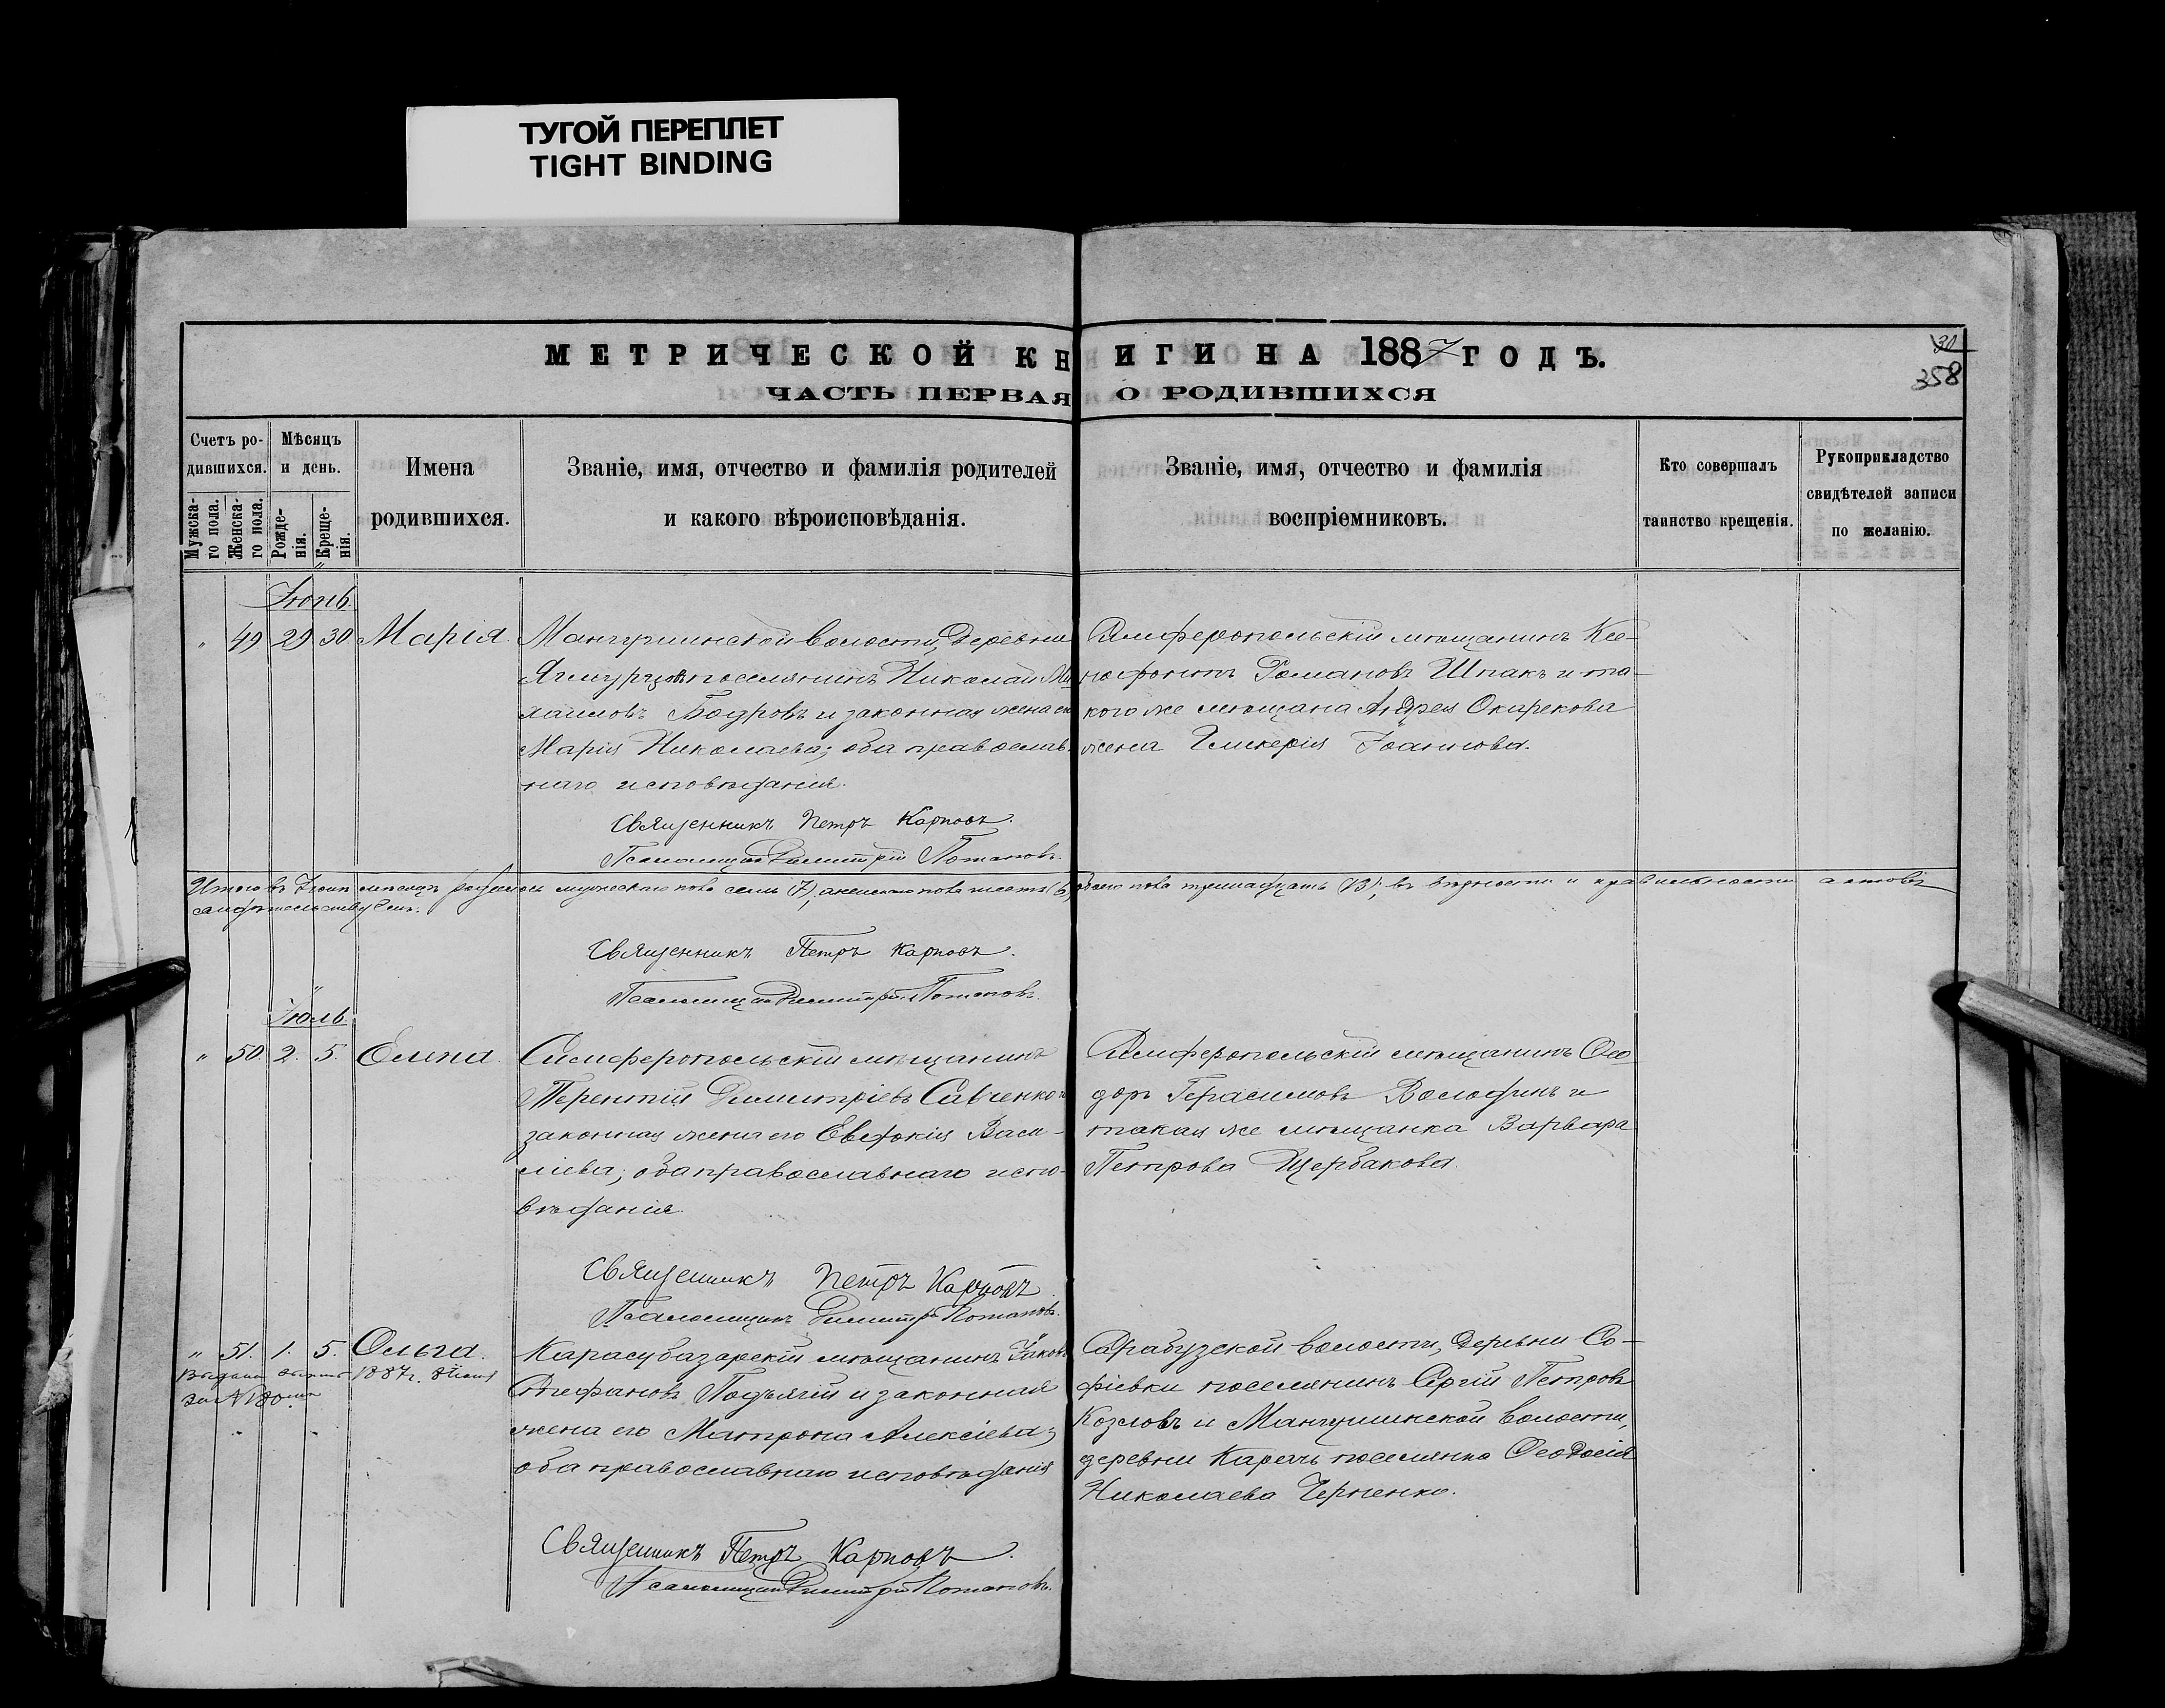 ТУГОЙ ПЕРЕПЛЕТ
TIGHT BINDING
МЕТРИЧЕСКОЙ КНИГИ НА 1887 ГОДЪ.
30
358
ЧАСТЬ ПЕРВАЯ О РОДИВШИХСЯ
Счетъ родившихся.
Мужскаго пола.
Женскаго пола.
Мѣсяцъ и день.
Рожденія.
Крещенія.
Имена
родившихся.
Званіе, имя, отчество и фамилія родителей
и какого вѣроисповѣданія.
Званіе, имя, отчество и фамилія
воспріемниковъ.
Кто совершалъ
таинство крещенія.
Рукоприкладство
свидѣтелей записи
по желанію.
Іюнь.
" 49 29 30 Марія.
Мангушинской волости, деревни
поселянинъ Николай Ми
хаиловъ Бодровъ и законная жена его
Марія Николаева; оба православ-
наго исповѣданія.
Симферопольскій мѣщанинъ Ксе-
нофонтъ Романовъ Шпакъ и та-
кого же мѣщана Андрея Окарекова
жена Гликерія Іоаннова.
Священникъ Петръ Карповъ.
Псаломщикъ Димитрій Потаповъ.
Итого въ Іюнѣ мѣсяцѣ родилось мужескаго пола семь (7), а женскаго пола шесть (6), обоего пола тринадцать (13); въ вѣрности и правильности актовъ
свидѣтельствуемъ.
Священникъ Петръ Карповъ.
Псаломщикъ Димитрій Потаповъ.
Іюль.
" 50. 2. 5. Елена.
Симферопольскій мѣщанинъ
Терентій Димитріевъ Савченко и
законная жена его Евдокія Васи-
ліева; оба православнаго испо-
вѣданія.
Симферопольскій мѣщанинъ Ѳео-
доръ Герасимовъ Володинъ и
такая же мѣщанка Варвара
Петрова Щербакова.
Священникъ Петръ Карповъ.
Псаломщикъ Димитрій Потаповъ.
" 51. 1. 5. Ольга.
1887г.
за № 180
Карасубазарскій мѣщанинъ Іаковъ
Стефановъ Подъячій и законная
жена его Матрона Алексіева;
оба православнаго исповѣданія
Сарабузской волости, деревни Со-
фіевки поселянинъ Сергій Петровъ
Козловъ и Мангушинской волости,
деревни Карачъ поселянка Ѳеодосія
Николаева Черненко.
Священникъ Петръ Карповъ.
Псаломщикъ Димитрій Потаповъ.